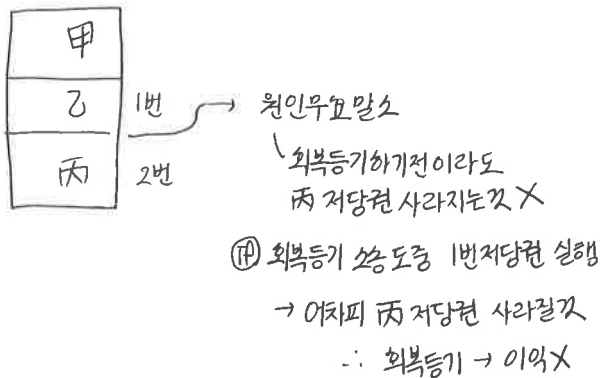 甲
乙 1번 → 원인무효말소
丙 2번
회복등기하기전이라도
丙 저당권 사라지는것 X
회복등기 소송도중 1번저당권 실행
→ 어차피 丙 저당권 사라질것
∴ 회복등기 → 이익X